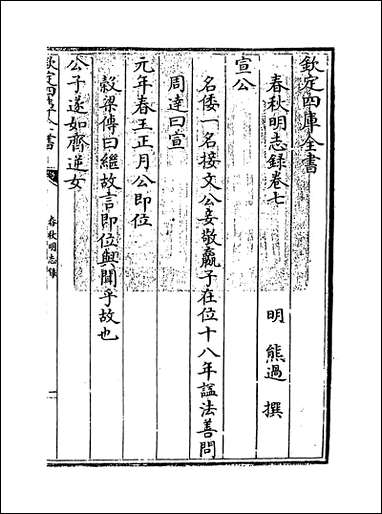 欽定四庫全書
春秋明志録卷七
明 熊過 撰
宣公
名倭一名接文公妾敬嬴子在位十八年諡法善問
周達曰宣
元年春王正月公即位
穀梁傳曰繼故言即位與聞乎故也
公子遂如齊逆女
欽定四庫全書
春秋明志録
一